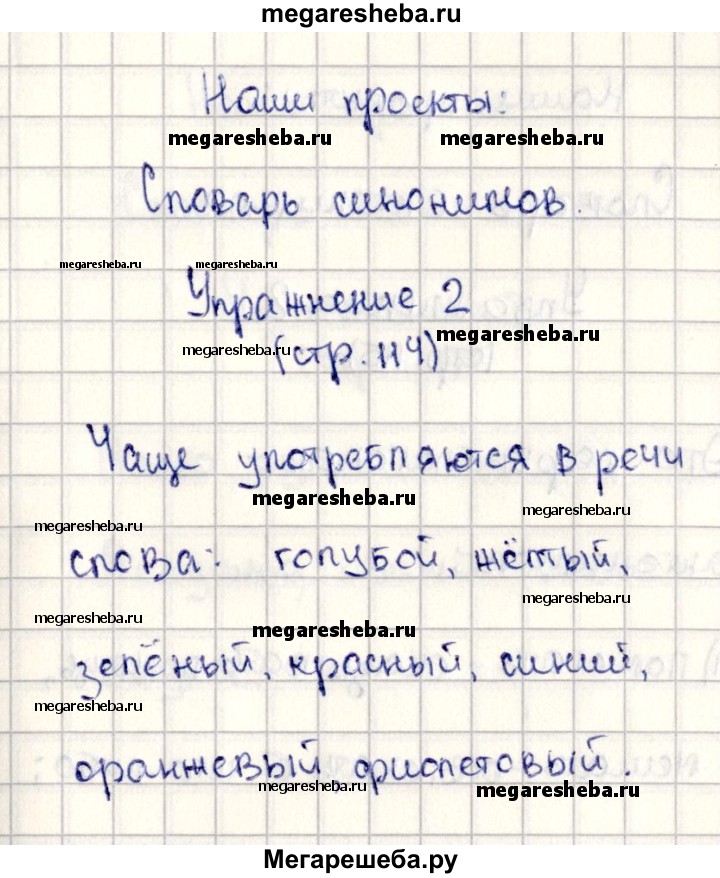 megaresheba.ru
Наши проекты:
megaresheba.ru megaresheba.ru
Словарь синонимов.
megaresheba.ru megaresheba.ru
Упражнение 2
megaresheba.ru
megaresheba.ru (стр. 114)
Чаще употребляются в речи
megaresheba.ru
megaresheba.ru megaresheba.ru
слова: голубой, жёлтый,
megaresheba.ru
megaresheba.ru megaresheba.ru
зелёный, красный, синий,
megaresheba.ru megaresheba.ru
оранжевый, фиолетовый.
megaresheba.ru megaresheba.ru
Мегарешеба.ру